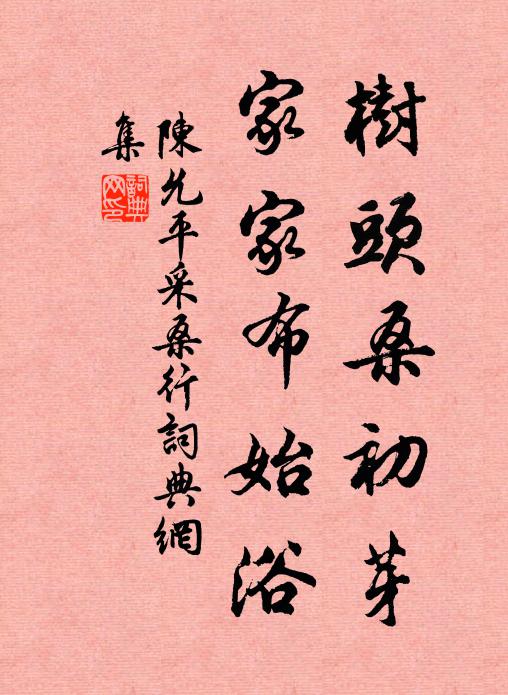 樹頭桑初芽
家家布始浴
陳允平采桑行詞典網
集
詞典
网印